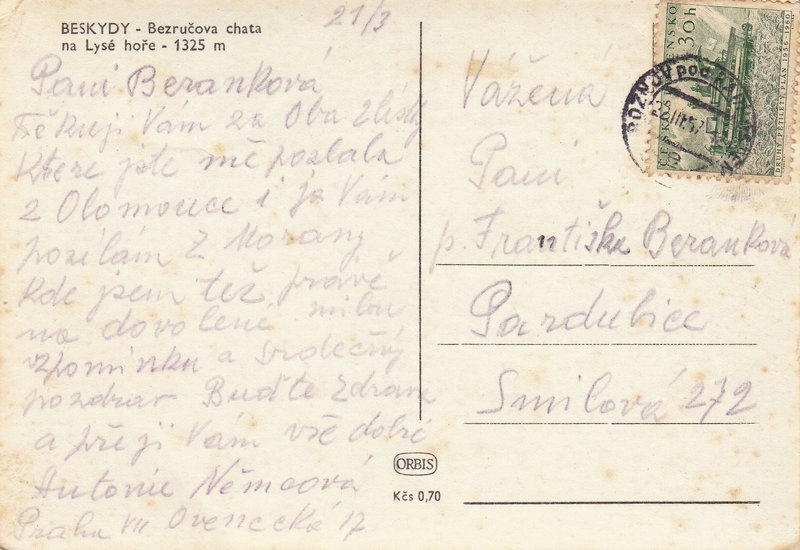 BESKYDY - Bezručova chata
na Lysé hoře - 1325 m
21/3
Paní Beranková
Děkuji Vám za Oba
Ktere jste mě poslala
z Olomouce i ja Vám
posílám z Moravy
kde jsem též právě
na dovolené milou
vzpomínku a srdečný
pozdrav Buďte Zdráva
a přeji Vám vše dobré
Antonie Němcová
Praha VII Ovenecká 17
Vážená
Paní
p. Františka Beranková
Pardubice
Smilová 272
ORBIS
Kčs 0,70
ČESKOSLOVENSKO
30 h
DRUHÝ PĚTILETÝ PLÁN 1956-1960
ROŽNOV pod RADHOŠTĚM